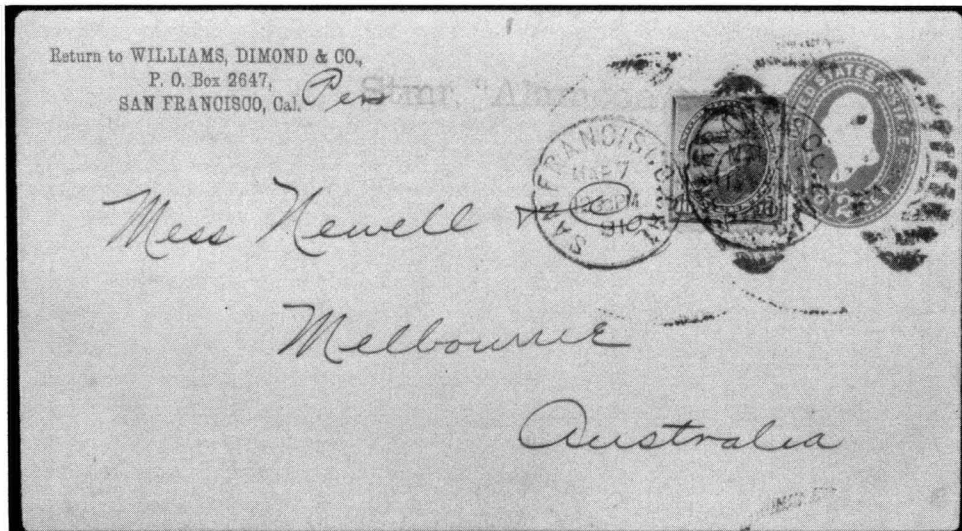 Return to WILLIAMS, DIMOND & CO.,
P. O. Box 2647,
SAN FRANCISCO, Cal.
Per Stmr. "Alameda
SAN FRANCISCO, CAL.
MAR 7
91
UNITED STATES POSTAGE
2
Mess Newell & Co
Melbourne
Australia